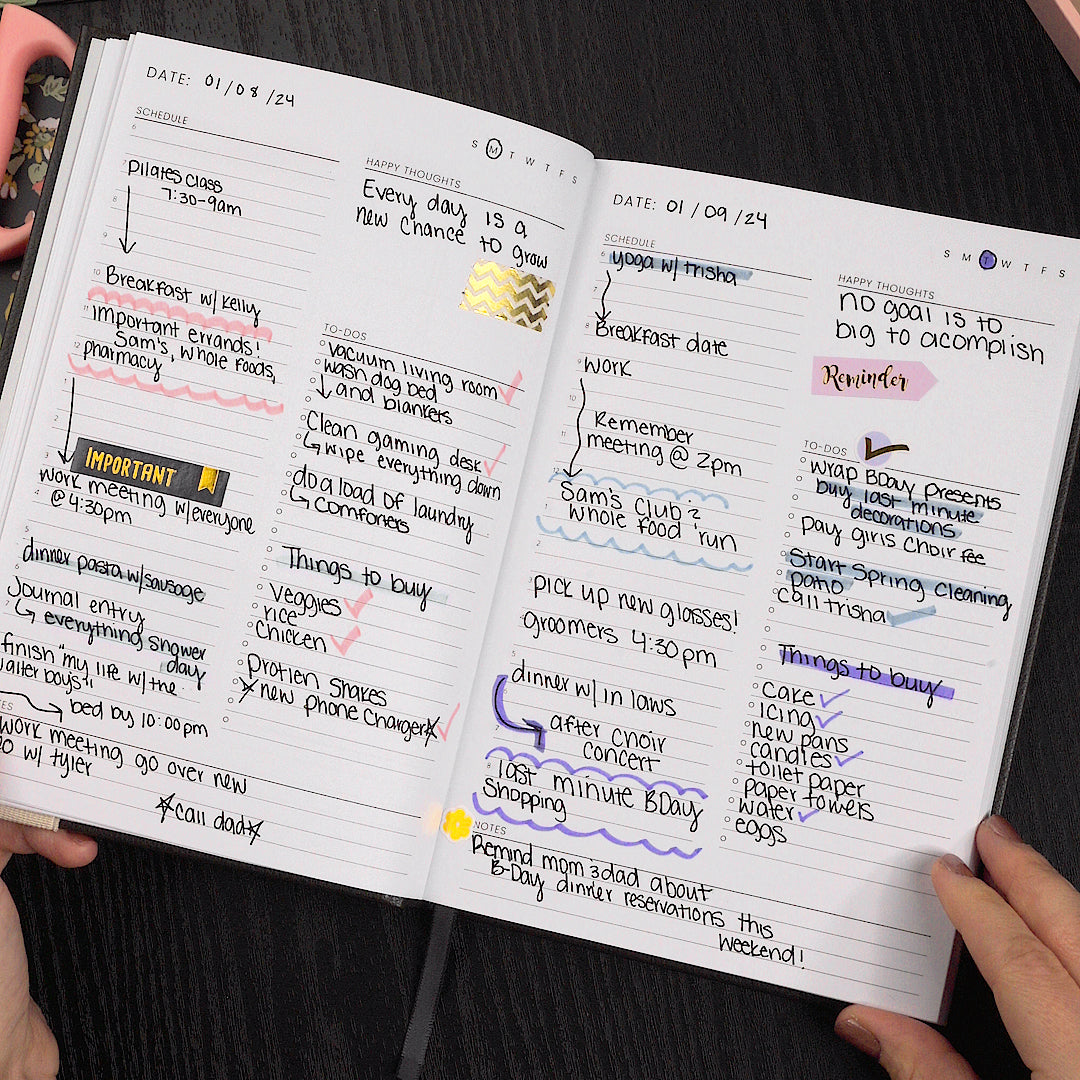 DATE: 01/08/24
S M T W T F S
SCHEDULE
6
7
Pilates class
7:30-9am
8
9
10
Breakfast w/ Kelly
11
Important errands!
Sam's, whole foods,
12
pharmacy
1
2
3
IMPORTANT
work meeting w/everyone
4
@ 4:30pm
5
dinner pasta w/sausage
Journal entry
7
everything shower
day
finish "my life w/ the
walter boys"
bed by 10:00pm
HAPPY THOUGHTS
Every day is a
new chance to grow
TO-DOS
vacuum living room
wash dog bed
and blankets
Clean gaming desk
wipe everything down
do a load of laundry
comforters
Things to buy
veggies
rice
chicken
protien shakes
new phone charger
work meeting go over new
w/ tyler
call dad
DATE: 01/09/24
S M T W T F S
SCHEDULE
6
yoga w/ trisha
8
Breakfast date
9
work
10
11
Remember
meeting @ 2pm
12
Sam's Club &
1
whole food run
2
3
pick up new glasses!
groomers 4:30pm
5
dinner w/ in laws
7
after choir
concert
8
last minute BDay
Shopping
HAPPY THOUGHTS
no goal is to
big to acomplish
Reminder
TO-DOS
wrap BDay presents
buy last minute
decorations
pay girls choir fee
Start Spring cleaning
patio
call trisha
Things to buy
cake
icing
new pans
candles
toilet paper
paper towels
water
eggs
NOTES
Remind mom & dad about
B-Day dinner reservations this
weekend!